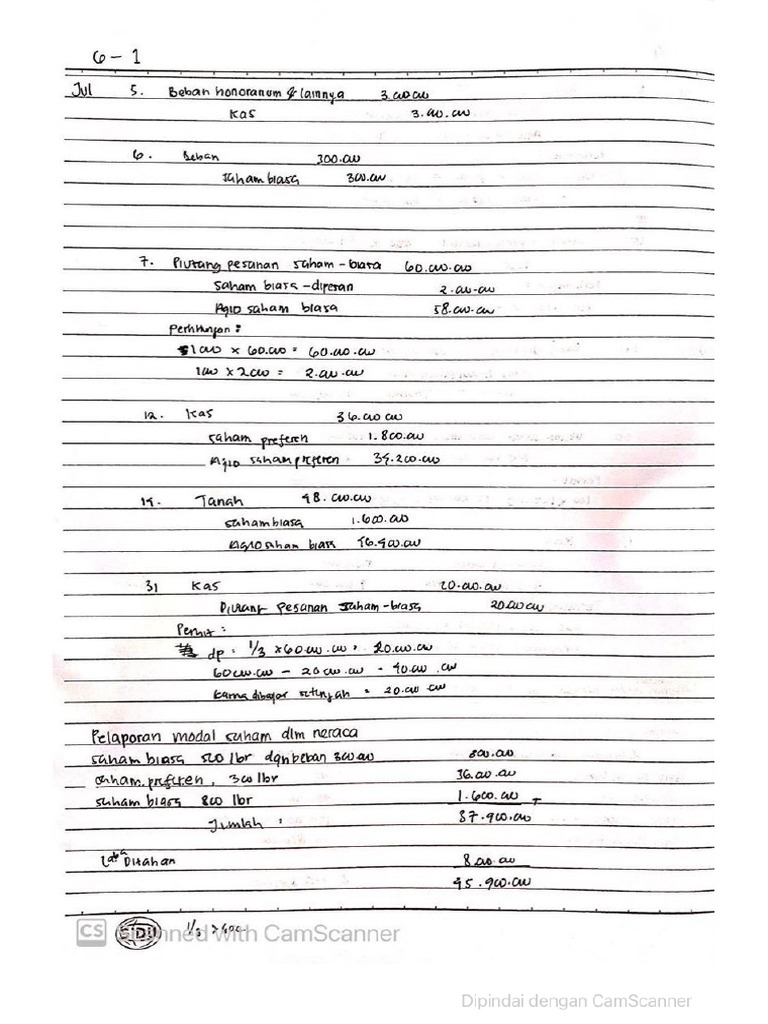 6 - 1
Jul 5. Beban honorarium & lainnya 3.000.000
Kas 3.000.000
6. Beban 300.000
Saham biasa 300.000
7. Piutang pesanan saham - biasa 60.000.000
Saham biasa - dipesan 2.000.000
Agio saham biasa 58.000.000
Perhitungan :
1000 x 60.000 = 60.000.000
1000 x 2000 = 2.000.000
12. Kas 36.000.000
Saham preferen 1.800.000
Agio saham preferen 34.200.000
14. Tanah 48.000.000
Saham biasa 1.600.000
Agio saham biasa 46.400.000
31 Kas 20.000.000
Piutang pesanan saham - biasa 20.000.000
dp = 1/3 x 60.000.000 = 20.000.000
60.000.000 - 20.000.000 = 40.000.000
karna dibayar setengah = 20.000.000
Pelaporan modal saham dlm neraca
saham biasa 500 lbr dgn beban 300.000 800.000
saham preferen, 300 lbr 36.000.000
saham biasa 800 lbr 1.600.000 +
Jumlah : 37.900.000
Laba Ditahan 8.000.000
45.900.000
SIDU 1/3 x
CS Scanned with CamScanner
Dipindai dengan CamScanner